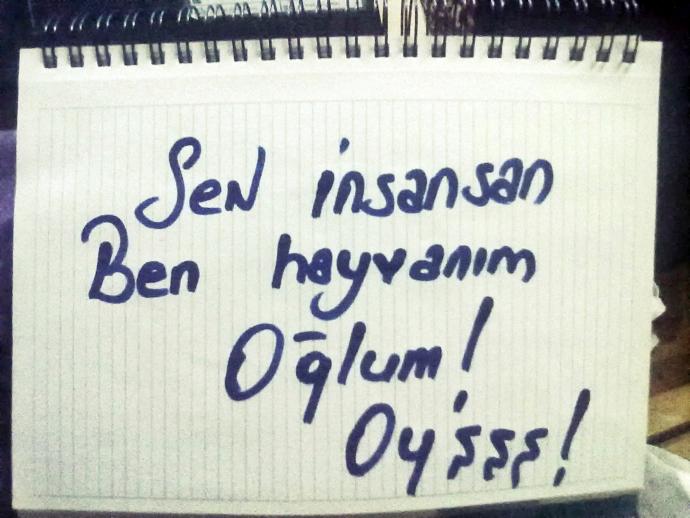 Sen insansan
Ben hayvanım
Oğlum!
Oyişşş!